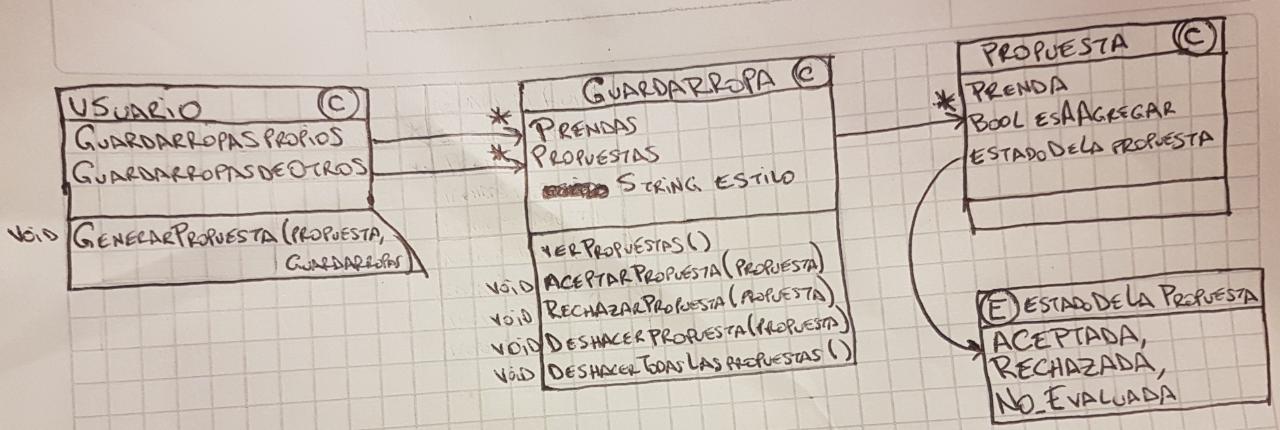 USUARIO C
GUARDARROPASPROPIOS
GUARDARROPASDEOTROS
VOID GENERARPROPUESTA(PROPUESTA,
GUARDARROPAS)
GUARDARROPA C
* PRENDAS
* PROPUESTAS
STRING ESTILO
VERPROPUESTAS()
VOID ACEPTARPROPUESTA(PROPUESTA)
VOID RECHAZARPROPUESTA(PROPUESTA)
VOID DESHACERPROPUESTA(PROPUESTA)
VOID DESHACERTODASLASPROPUESTAS()
PROPUESTA C
PRENDA
* BOOL ESAAGREGAR
ESTADODELA PROPUESTA
E ESTADODELA PROPUESTA
ACEPTADA,
RECHAZADA,
NO_EVALUADA